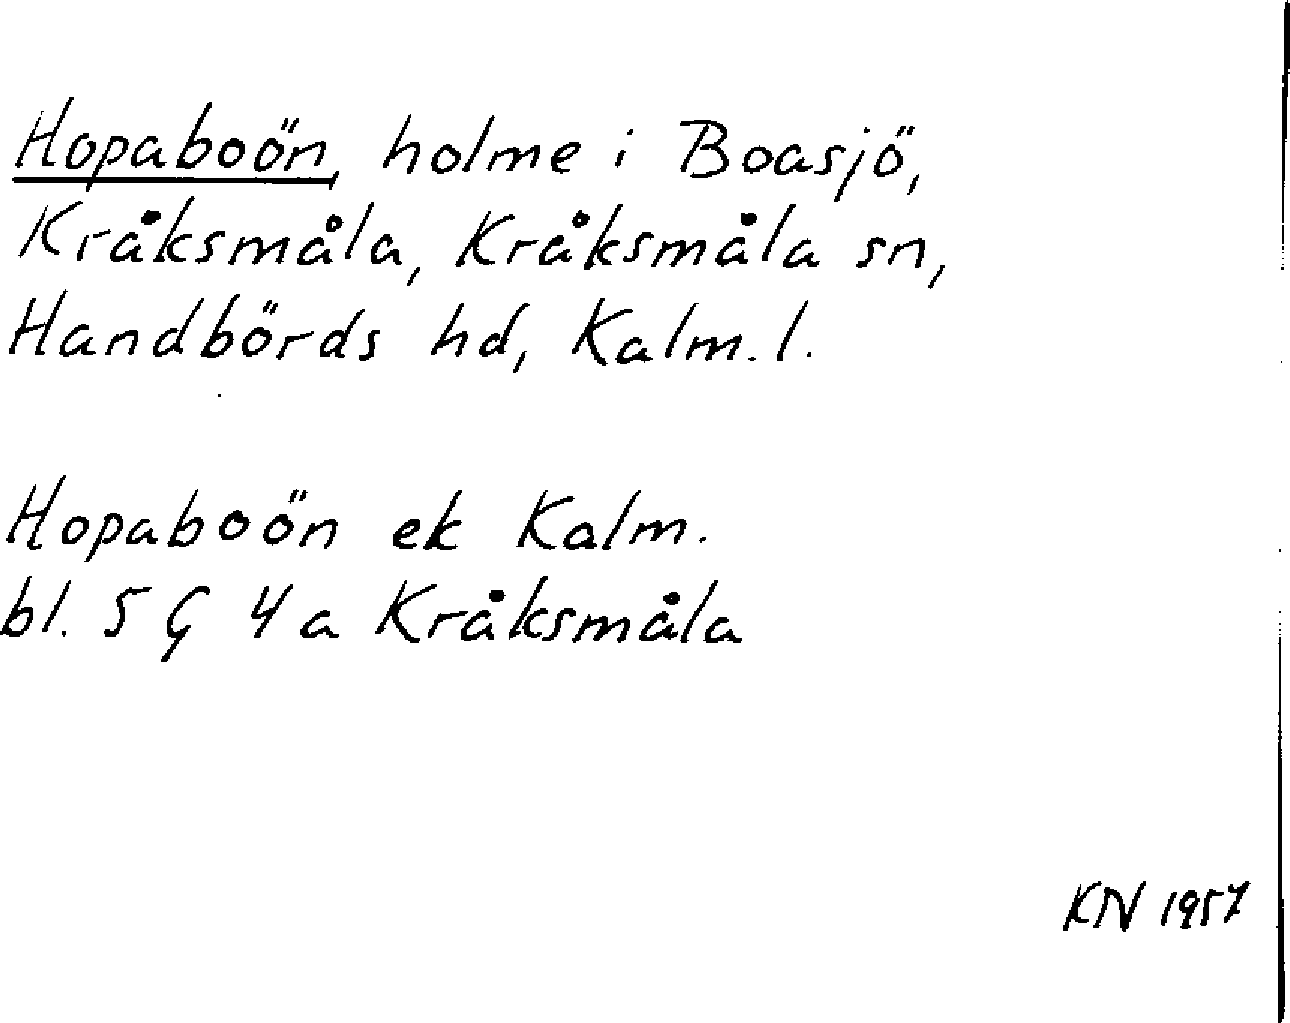 Hopaboön, holme i Boasjö,
Kråksmåla, Kråksmåla sn,
Handbörds hd, Kalm. l.
Hopaboön ek Kalm.
bl. 5 G 4 a Kråksmåla
KN 1957